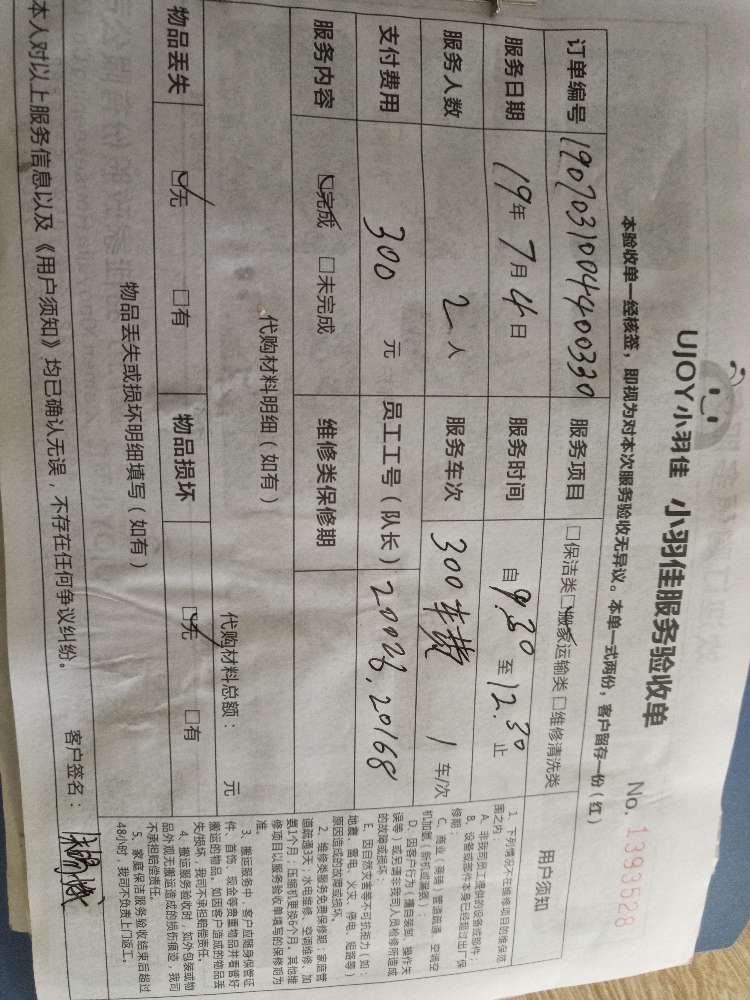 UJOY小羽佳 小羽佳服务验收单 No. 1393528
本验收单一经核签，即视为对本次服务验收无异议。本单一式两份，客户留存一份（红）
订单编号 190703100440033 0 服务项目 □保洁类☑搬家运输类 □维修清洗类
服务日期 19年7月4日 服务时间 自9.30至12.30止
服务人数 2人 服务车次 300车费 1车/次
支付费用 300元 员工工号（队长） 20168
服务内容 ☑完成 □未完成 维修类保修期
代购材料明细（如有）
代购材料总额： 元
物品丢失 ☑无 □有 物品损坏 ☑无 □有
物品丢失或损坏明细填写（如有）
本人对以上服务信息以及《用户须知》均已确认无误，不存在任何争议纠纷。
客户签名：
用户须知
1. 下列情况不在维修项目的维保范
围之内
A. 非我司员工提供的设备或部件
B. 设备或部件本身已经超过出厂保
修期；
C. 商业（商铺）管道疏通、空调空
机加氨（新机或漏氨）；
D. 因客户行为（擅自装卸、操作失
误等）或另请非我司人员检修所造成
的故障或损坏；
E. 因自然灾害等不可抗拒力（如：
地震、雷电、火灾、停电、短路等）
原因造成的故障或损坏。
2. 维修类服务免费保修期：家庭管
道疏通3天；水电维修、空调维修、加
氨1个月；压缩机更换6个月。其他维
修项目以服务验收单填写的保修期为
准。
3. 搬运服务中，客户应随身保管证
件、首饰、现金等贵重物品并看管好
搬运的物品。如因客户造成的物品丢
失/损坏，我司不承担赔偿责任。
4. 搬运服务验收时，如外包装或物
品外观无搬运造成的损伤痕迹，我司
不承担赔偿责任。
5. 家庭保洁服务验收结束后超过
48小时，我司不负责上门返工。